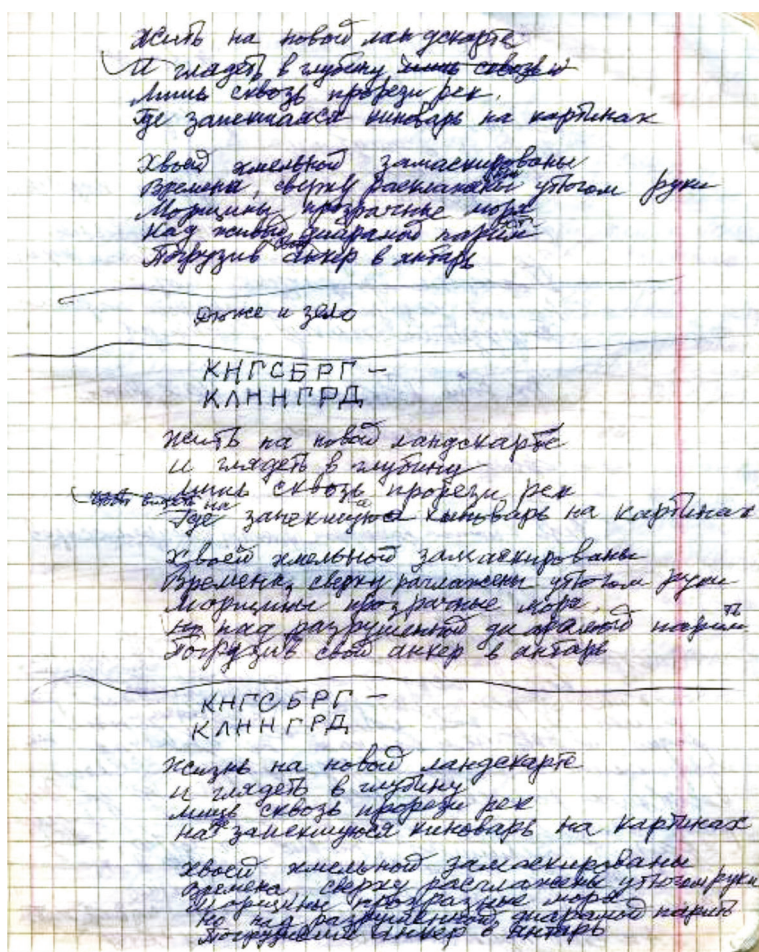 Жить на новой ландскарте
И глядеть в глубину лишь сквозь
Лишь сквозь прорези рек,
Где запекшаяся киноварь на картинах
Хвоей хмельной замаскированы
Времена, сверху разглажены утюгом руки
Морщины прозрачные моря
Над живой диарамой парить
Погрузив свой анкер в янтарь
Дюже и зело
КНГСБРГ –
КЛННГРД
Жить на новой ландскарте
и глядеть в глубину
лишь сквозь прорези рек
чтобы видеть на
Где запекшуюся киноварь на картинах
Хвоей хмельной замаскированы
Времена, сверху разглажены утюгом руки
Морщины прозрачные моря,
но над разрушенной диарамой парить
Погрузив свой анкер в антарь
КНГСБРГ –
КЛННГРД
Жизнь на новой ландскарте
и глядеть в глубину
лишь сквозь прорези рек
на запекшуюся киноварь на картинах
хвоей хмельной замаскированы
времена, сверху разглажены утюгом руки
морщины прозрачные моря
но над разрушенной диарамой парить
анкер в антарь